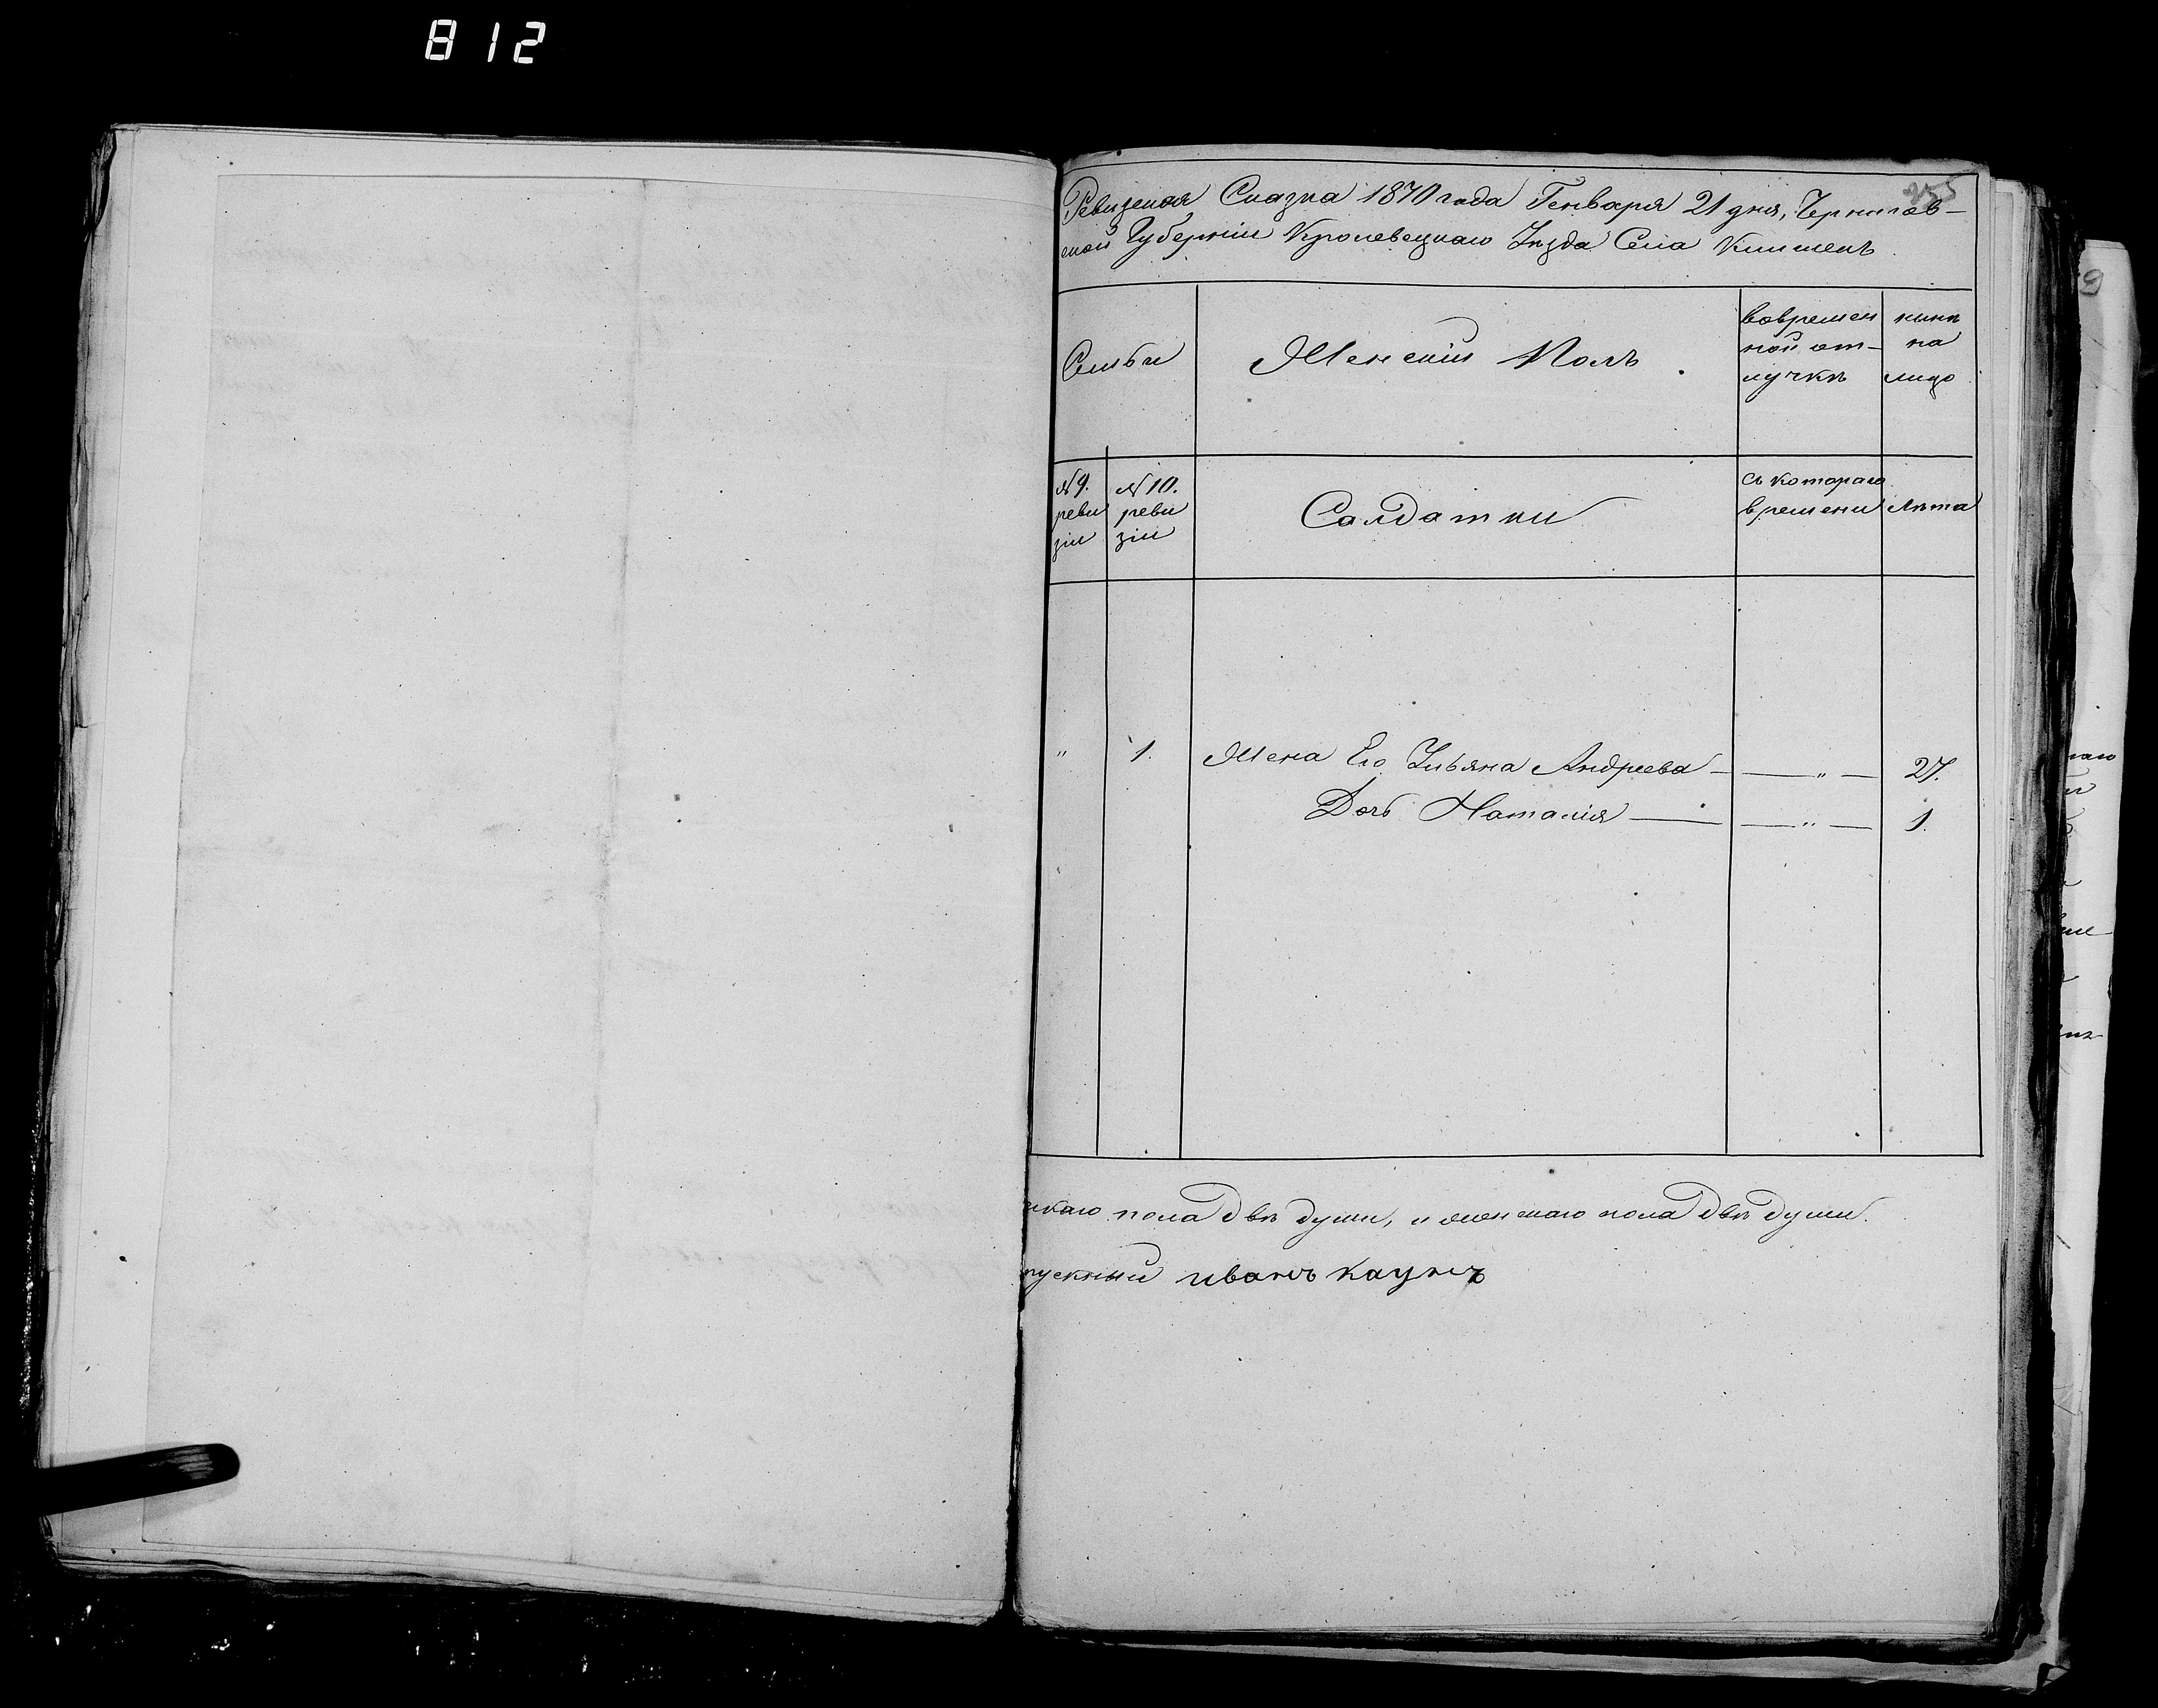 812
255
Ревизская Сказка 1870 года Генваря 21 дня, Чернигов-
ской Губерніи Кролевецкаго Уѣзда Села Клишекъ
Семьи
Женскій Полъ
вовремен
ной от-
лучкѣ
нынѣ
на
лицо
№ 9.
реви
зіи
№ 10.
реви
зіи
Салдатки
съ котораго
времени
лѣта
" 1. Жена Его Ульяна Андреева — — " — 27.
Дочь Наталія — — " — 1.
скаго пола двѣ души, и женскаго пола двѣ души.
пускный иванъ каунъ